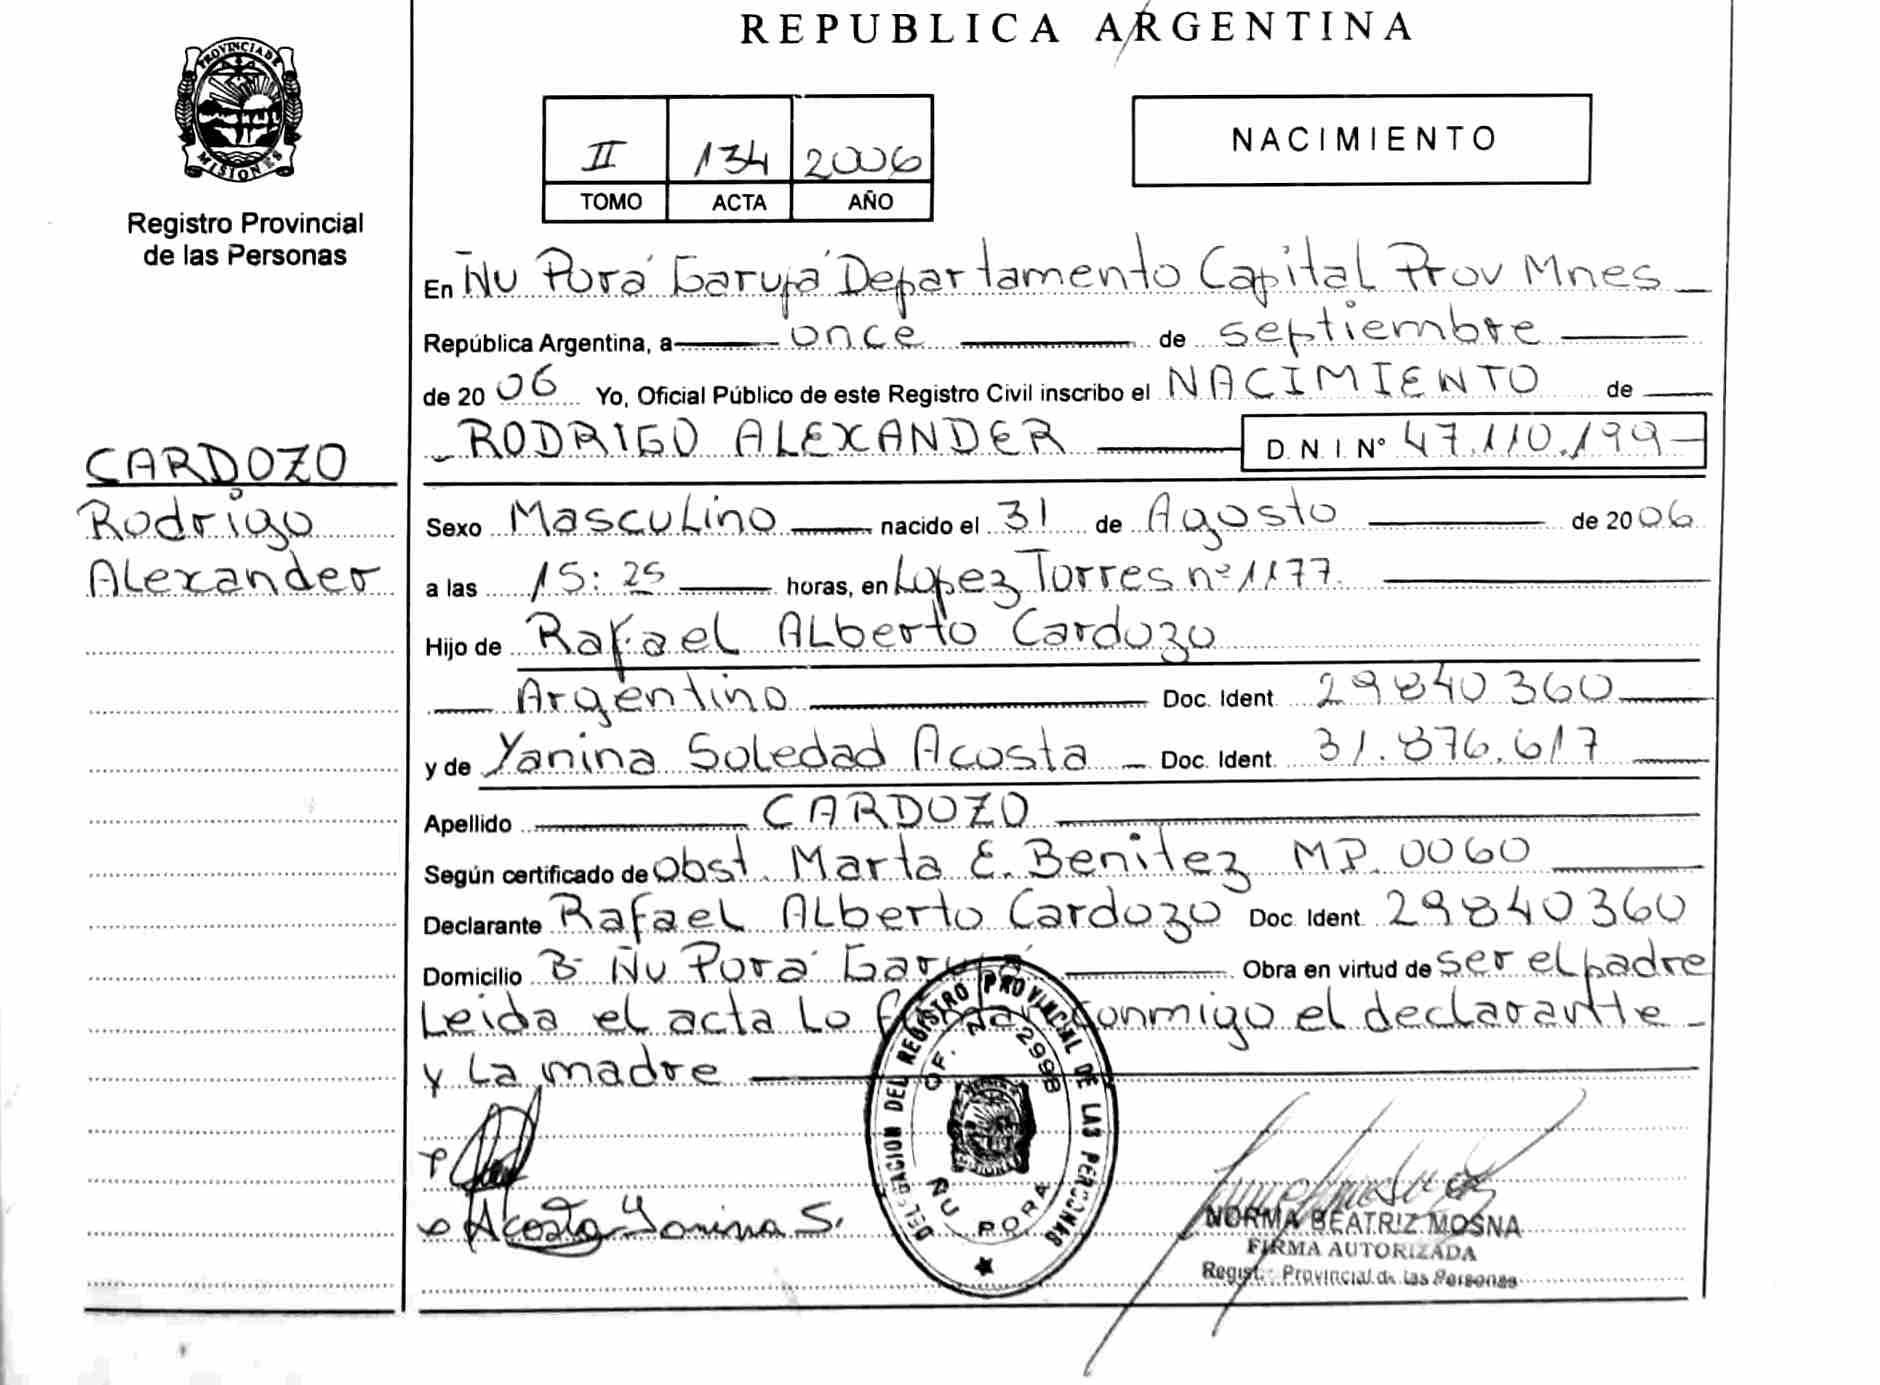 REPUBLICA ARGENTINA
PROVINCIA DE
MISIONES
Registro Provincial
de las Personas
II 134 2006
TOMO ACTA AÑO
NACIMIENTO
En Ñu Porá Garupá Departamento Capital Prov Mnes
República Argentina, a once de septiembre
de 2006 Yo, Oficial Público de este Registro Civil inscribo el NACIMIENTO de
RODRIGO ALEXANDER D.N.I.Nº 47.110.199
CARDOZO
Rodrigo
Alexander
Sexo Masculino nacido el 31 de Agosto de 2006
a las 15:25 horas, en Lopez Torres nº 1177.
Hijo de Rafael Alberto Cardozo
Argentino Doc. Ident 29840360
y de Yanina Soledad Acosta Doc. Ident. 31.876.617
Apellido CARDOZO
Según certificado de obst. Marta E. Benitez MP. 0060
Declarante Rafael Alberto Cardozo Doc. Ident 29840360
Domicilio B- Ñu Porá Garupá Obra en virtud de ser el padre
Leida el acta Lo conmigo el declarante
y La madre
DELEGACION DEL REGISTRO PROVINCIAL DE LAS PERSONAS
OF. 2998
ÑU PORA
Acosta Yanina S.
NORMA BEATRIZ MOSNA
FIRMA AUTORIZADA
Regist. Provincial de las Personas